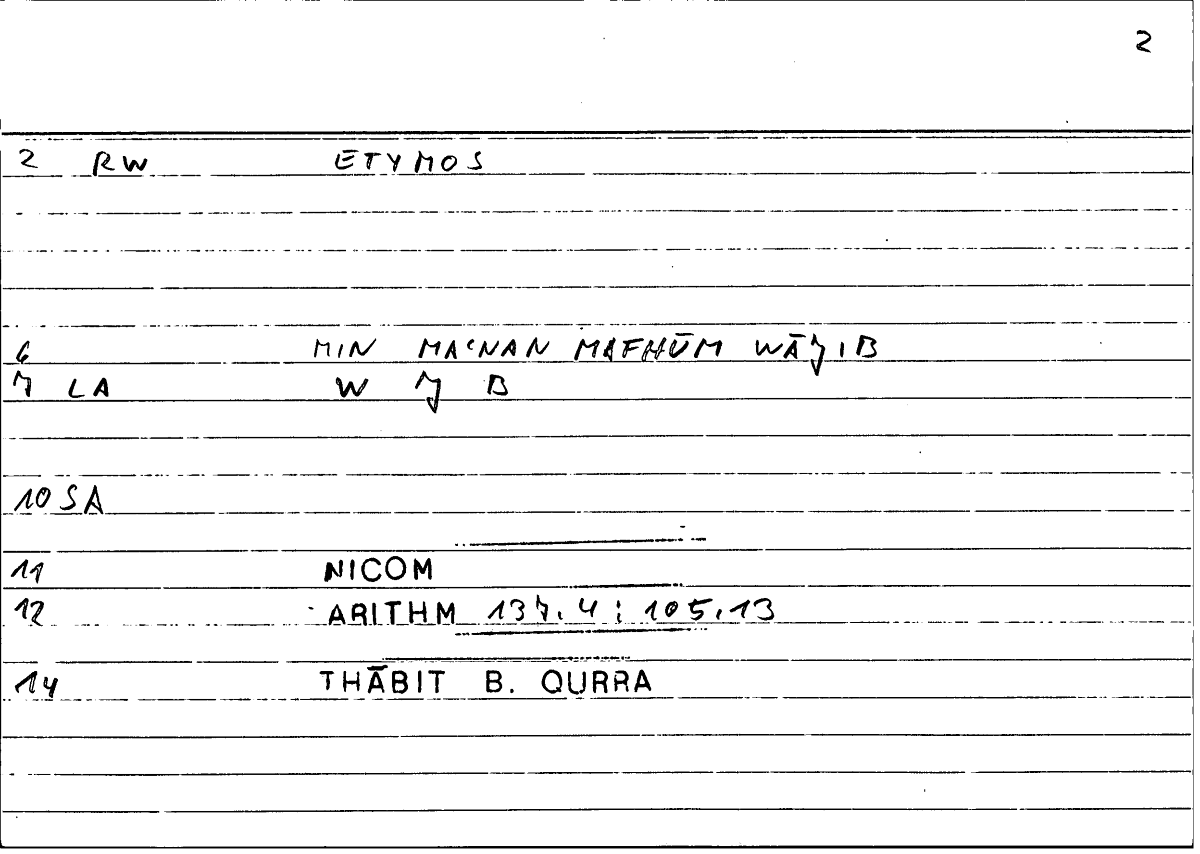 2
2 RW ETYMOS
6 MIN MAʿNAN MAFHŪM WĀJIB
7 LA W J B
10 SA
11 NICOM
12 ARITHM 137.4 : 105.13
14 THĀBIT B. QURRA